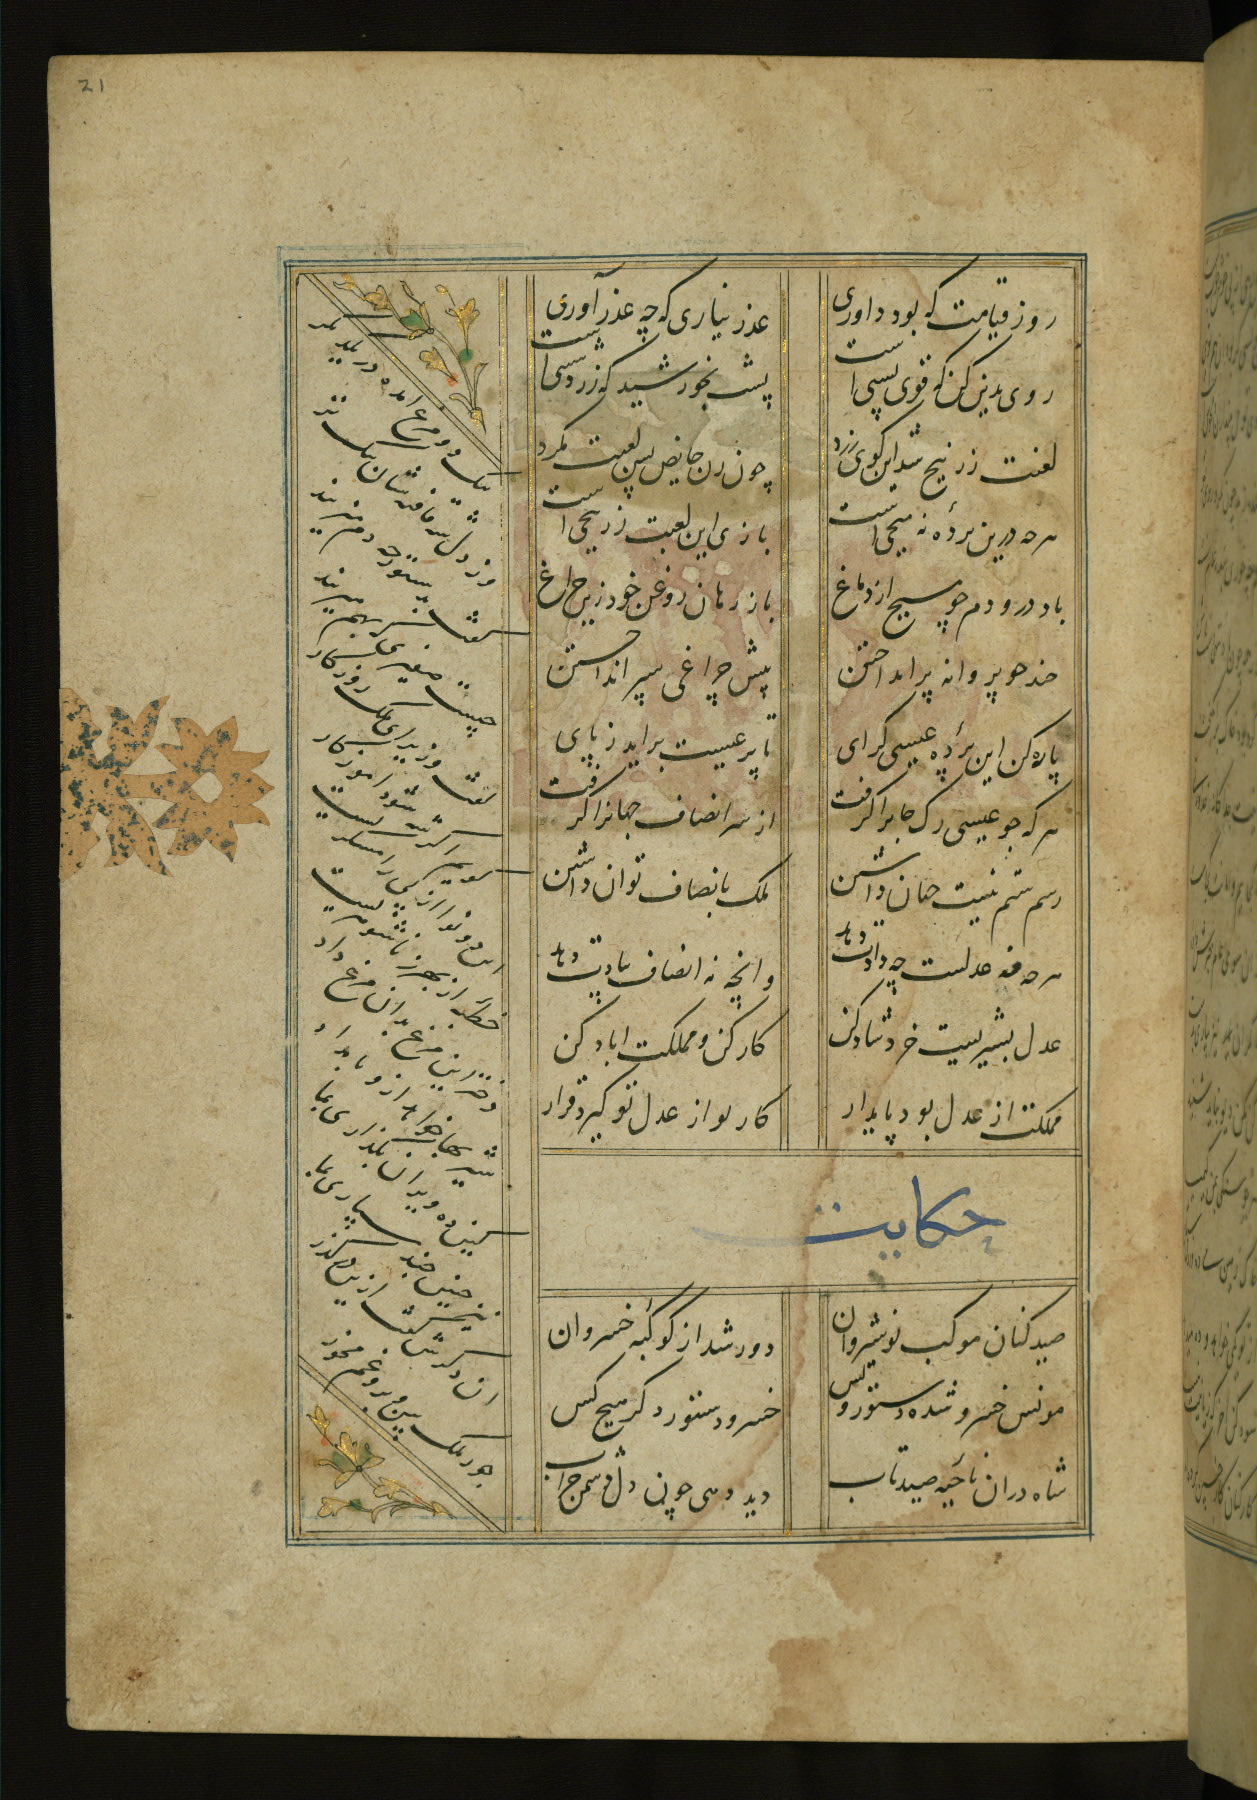 21
روز قیامت که بود داوری
عذر نیاری که چه عذر آوری
روی بدین کن که قوی پشتی است
پشت بخورشید که زردشتی است
لعنت زرنیخ شد این کوی زرد
چون زن حایض پس لعبت مکرد
هرچه درین پرده نه میخی است
بازی این لعبت زرنیخی است
باد درو دم چو مسیح از دماغ
باز رهان روغن خود زین چراغ
چند چو پروانه پر انداختن
پیش چراغی سپر انداختن
پاره کن این پرده عیسی کرای
تا پر عیسیت براید ز پای
هر که چو عیسی رک جانرا کرفت
از سر انصاف جهانرا کرفت
رسم ستم نیست جهان داشتن
ملک بانصاف توان داشتن
هرچه نه عدلست چه دادت دهد
وانچه نه انصاف ببادت دهد
عدل بشیریست خرد شادکن
کارکن و مملکت ابادکن
مملکت از عدل بود پایدار
کار تو از عدل تو کیرد قرار
حکایت
صیدکنان موکب نوشیروان
دور شد از کوکبه خسروان
مونس خسرو شده دستور و بس
خسرو و دستور و دکر هیچ کس
شاه دران ناحیه صیدیاب
دید دهی چون دل دشمن خراب
تنک دو مرغ امده در یکدیگر
وز دل شه قافیه شان تنک تر
گفت بدستور چه دم میزنند
چیست صفیری که بهم میزنند
گفت وزیر ای ملک روزکار
گویم اگر شه بود اموزکار
این دو نوا از پی رامشکریست
خطبه از بهر زناشوهریست
دختری این مرغ بدان مرغ داد
شیربها خواهد ازو بامداد
کین ده ویران بگذاری بما
نیز چنین چند سپاری بما
ان دکرش گفت ازین درگذر
جور ملک بین و برو غم مخور